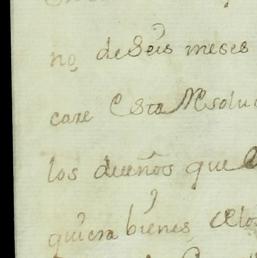 no, de Seis meses
care Esta Resolu
los dueños que
quiera bienes, de los